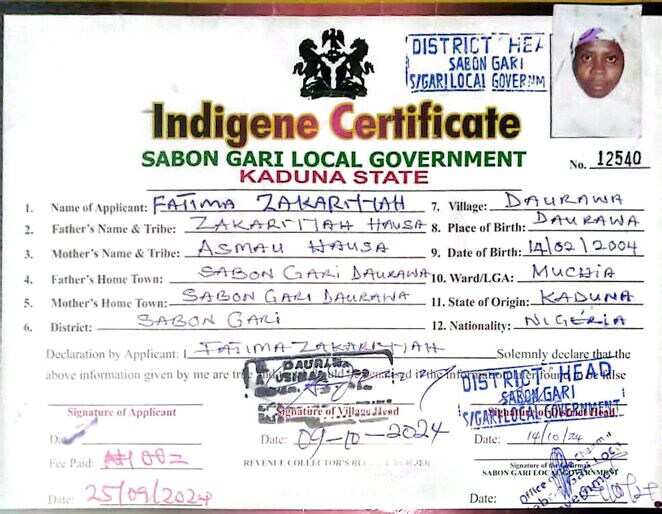 DISTRICT HEAD
SABON GARI
S/GARI LOCAL GOVERNM
Indigene Certificate
SABON GARI LOCAL GOVERNMENT
KADUNA STATE
No. 12540
1. Name of Applicant: FATIMA ZAKARIYYAH 7. Village: DAURAWA
2. Father's Name & Tribe: ZAKARIYYAH HAUSA 8. Place of Birth: DAURAWA
3. Mother's Name & Tribe: ASMAU HAUSA 9. Date of Birth: 14/02/2004
4. Father's Home Town: SABON GARI DAURAWA 10. Ward/LGA: MUCHIA
5. Mother's Home Town: SABON GARI DAURAWA 11. State of Origin: KADUNA
6. District: SABON GARI 12. Nationality: NIGERIA
Declaration by Applicant: I FATIMA ZAKARIYYAH Solemnly declare that the
above information given by me are true and if the information are found to be false
DAURAWA
DISTRICT HEAD
SABON GARI
S/GARI LOCAL GOVERNMENT
Signature of Applicant Signature of Village Head Signature of District Head
Date: 09-10-2024 Date: 14/10/24
Fee Paid: REVENUE COLLECTOR'S
SABON GARI LOCAL GOVERNMENT
Office of
Date: 25/09/2024 Date: